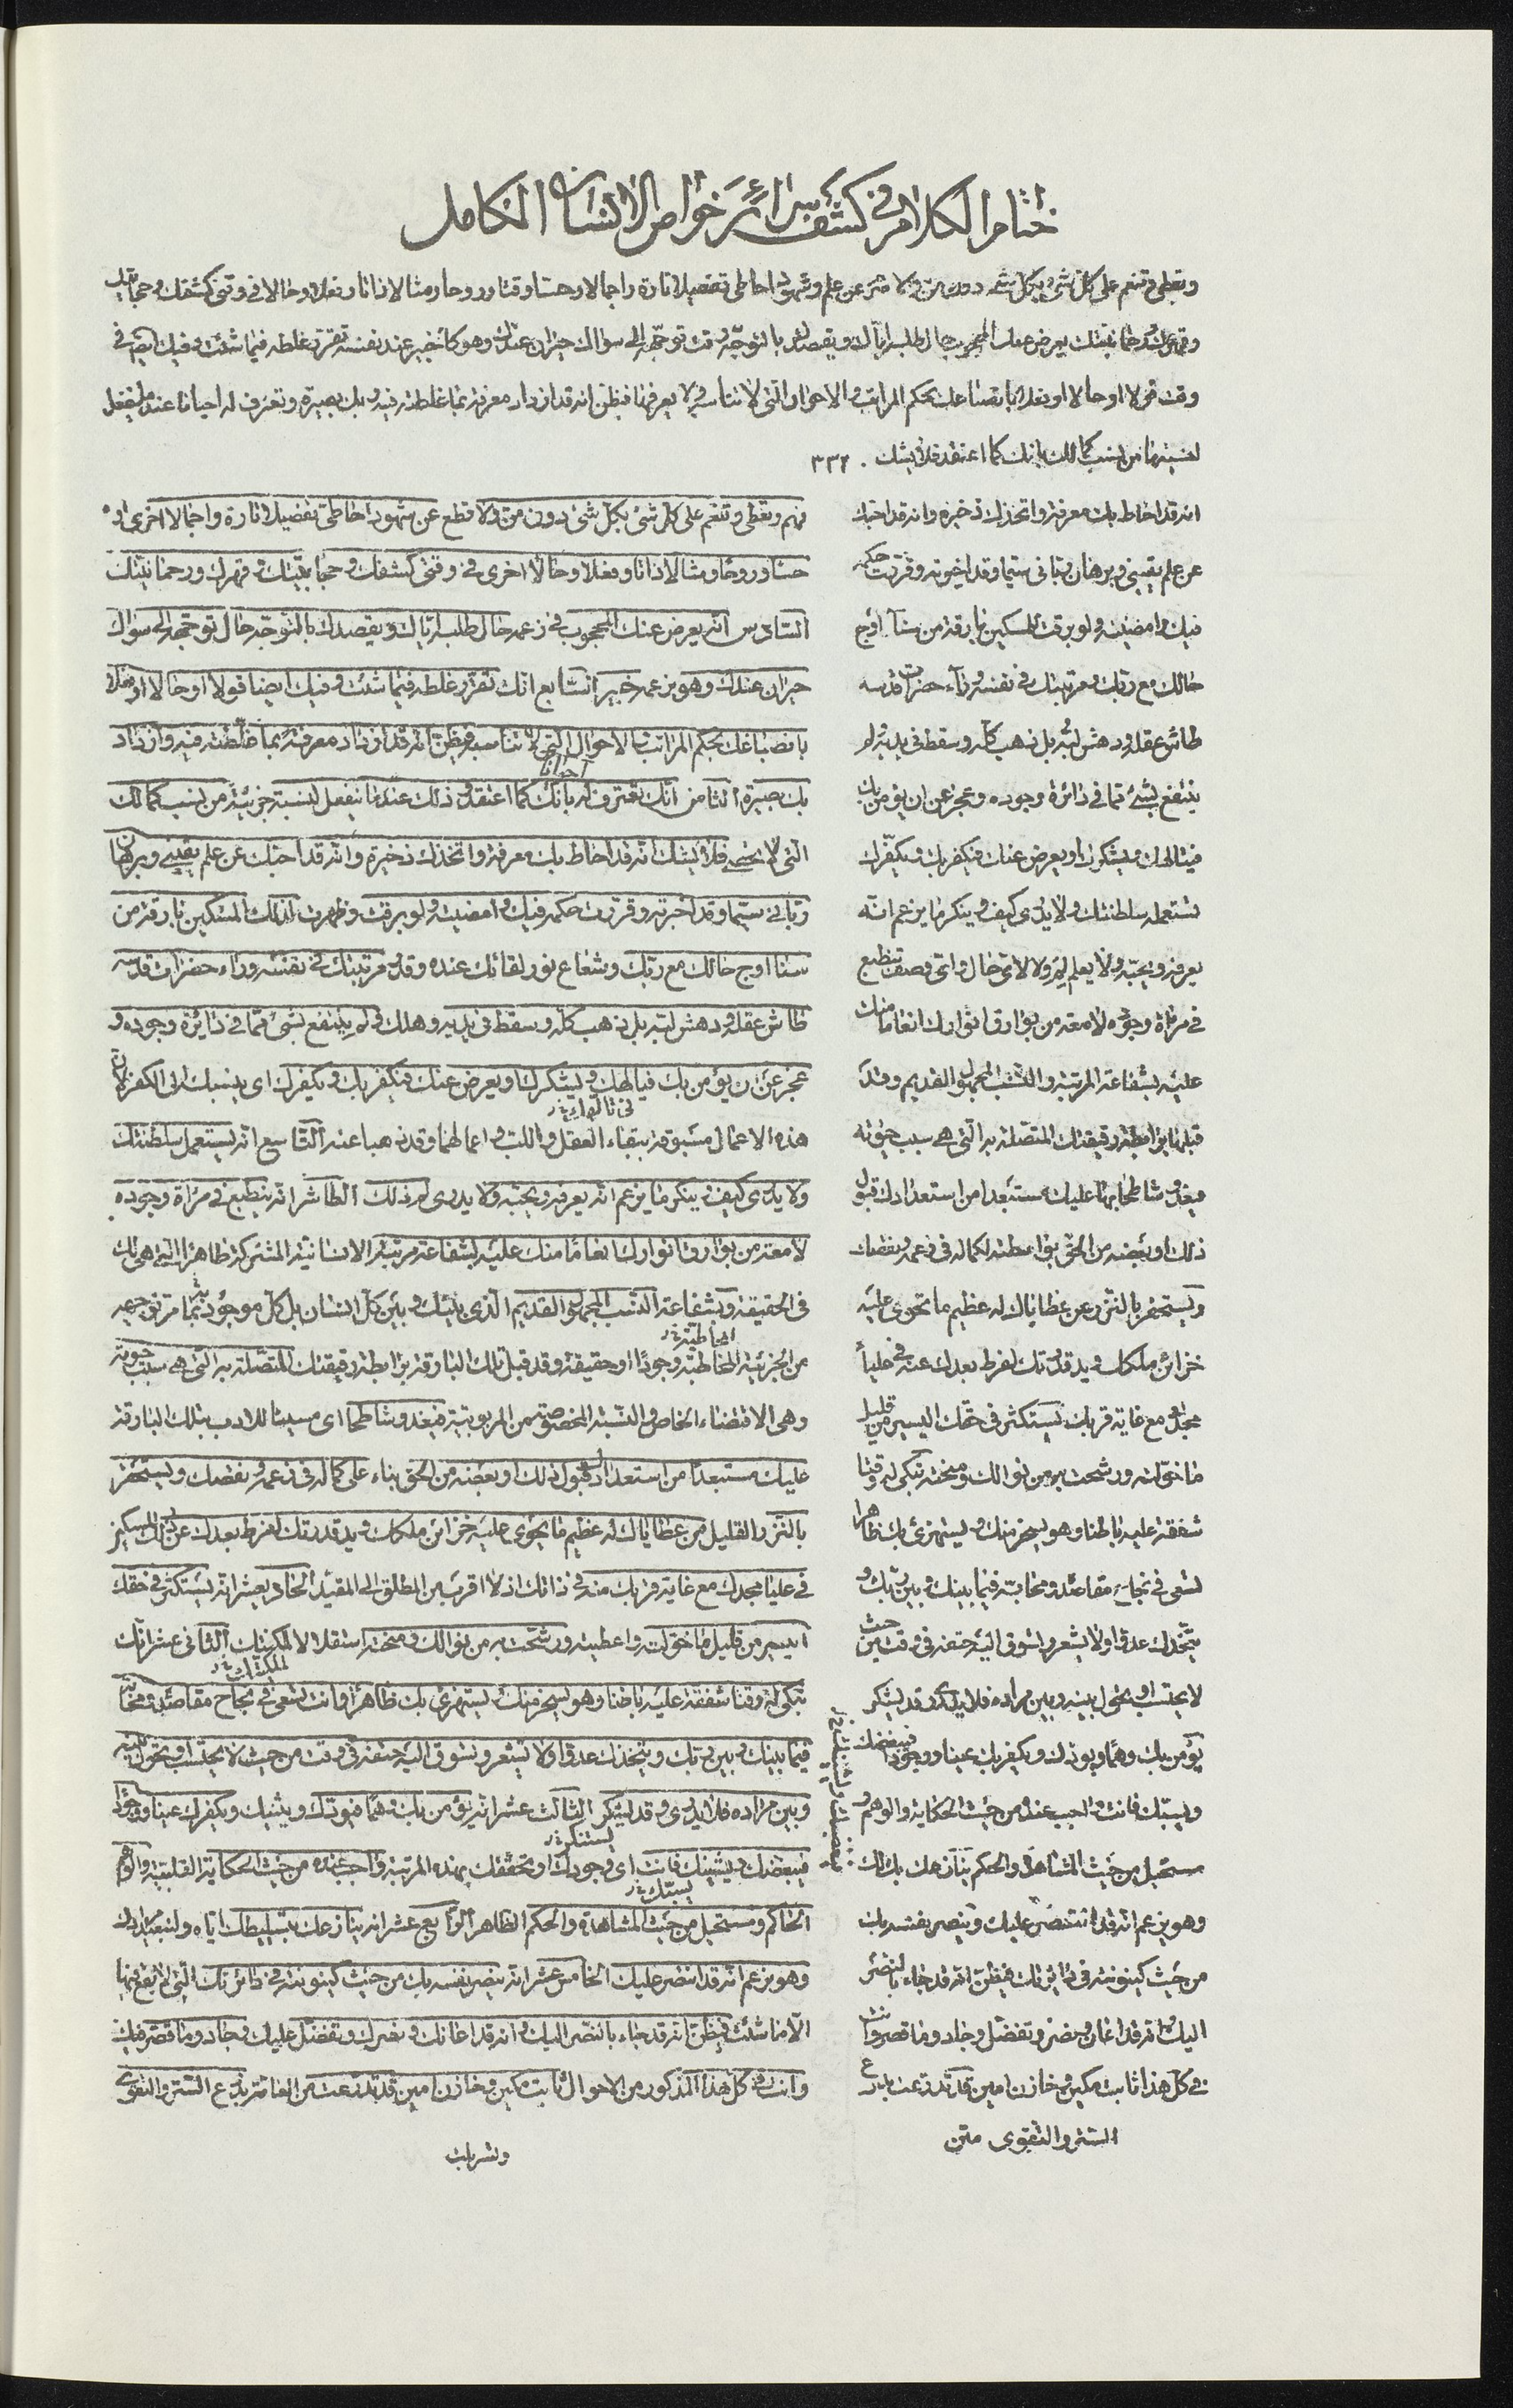 ختام الكلام في كشف سرائر خواص الانسان الكامل
وتعطى وتنعم على كل شئ بكل شئ دون من ولا عن علم وشهود احاطى تفصيلا تارة واجمالا وحسا وقتا وروحا ومثالا ذاتا وفعلا وحالا فى وقتى كشفك وحجابيتك
وقهرك ورحمانيتك يعرض عنك المحجوب حال طلبه اياك ويقصدك بالتوجه وقت توجهه الى سؤالك حيران عندك وهو كالخبير عند نفسه تقرر غلطه فيما شئت وفيك ايضا فى
وقت قولا او حالا او فعلا بانصباغك بحكم المراتب والاحوال التى لا تناسبه ولا يعرفها فيظن انه قد ازداد معرفة بما غلطته فيه وبك بصيرة وتعترف له احيانا عند ما ينفعل
لنسبة ما من نسب كمالك بانك كما اعتقد فلا يشك . ٣٣٢
انه قد احاط بك معرفة واتخذك ذخيرة وانه قد احبك
عن علم يقينى وبرهان ربانى سيما وقد اخبرته وقررت حكمه
فيك وامضيته ولو برقت للمسكين بارقة من سنا اوج
حالك مع ربك ومرتبتك فى نفسه وراء حضرات قدسه
طاش عقله ودهش لبه بل ذهب كله وسقط فى يديه ولم
ينتفع بشئ مما فى دائرة وجوده وعجز عن ان يؤمن بك
فيتالهك ويشكرك او يعرض عنك فيكفر بك ويكفرك
تستعمله سلطنتك ولا يدرى كيف وينكر ما يزعم انه
يعرفه ويحبه ولا يعلم لم ولا لاى حال واى وصف تنطبع
فى مرآة وجوده لامعة من بوارق انوارك انعاما منك
عليه بشفاعة المرتبة والنسب المجهول القديم وقد
قبلها برابطة رقيقتك المتصلة به التى هى سبب حيوته
فيغدو شاطحا بها عليك مستبعدا من استعدادك قبول
ذلك او بعضه من الحق بواسطته لكماله فى زعمه ونقصك
ويستحقر بالنزر عن عطاياك له عظيم ما تحوى عليه
خزائن ملكك ويد قدرتك لفرط بعدك عنه فى علياء
مجدك مع غاية قربك يستكثر فى حقك اليسير من قليل
ما خولته ورشحت به من نوالك ومنحته تبكى له وقتا
شفقة عليه باطنا وهو يسخر منك ويستهزئ بك ظاهرا
تسعى فى نجاح مقاصده ومحابه فيما بينك وبين ربك و
يتخذك عدوا ولا يشعر وتسوق اليه حتفه فى وقت من حيث
لا يحتسب او تحول بينه وبين مراده فلا يدرى وقد يشكر
يؤمن بك وهما ويوذك ويكفر بك عينا ووجودا فيبغضك
ويسبك فانت واجب عنده من حيث الحكاية والوهم و
مستحيل من حيث المشاهدة والحكم ينازعك بك لك
وهو يزعم انه قد انتصر عليك وينصر نفسه بك
من حيث كينونته فى دائرتك فيظن انه قد جاء بالنصر
اليك وانه قد اعان ونصر وتفضل وجاد وما قصر وانت
فى كل هذا ثابت مكين وخازن امين قد تدرعت بدرع
الستر والتقوى متن
منهم وتعطى وتنعم على كل شئ بكل شئ دون من ولا قطع عن شهود احاطى تفصيلا تارة واجمالا اخرى او
حسا وروحا ومثالا ذاتا وفعلا وحالا اخرى فى وقتى كشفك وحجابيتك وقهرك ورحمانيتك
السادس انه يعرض عنك المحجوب فى زعمه حال طلبه اياك ويقصدك بالتوجه حال توجهه الى سؤالك
حيران عندك وهو بزعمه خبير السابع انك تقرر غلطه فيما شئت وفيك ايضا قولا او حالا او فعلا
بانصباغك بحكم المراتب والاحوال التى لا تناسبه فيظن انه قد ازداد معرفة بما غلطته فيه وازداد
بك بصيرة الثامن انك تعترف له بانك كما اعتقد وذلك عند ما ينفعل لنسبة جزئية من نسب كمالك
احيانا
التى لا تحصى فلا يشك انه قد احاط بك معرفة واتخذك ذخيرة وانه قد احبك عن علم يقينى وبرهان
ربانى سيما وقد اخبرته وقررت حكمه فيك وامضيته ولو برقت وظهرت لذلك المسكين بارقة من
سنا اوج حالك مع ربك وشعاع نور لقائك عنده وقدر مرتبتك فى نفسه وراء حضرات قدسه
طاش عقله ودهش لبه بل ذهب كله وسقط فى يديه وهلك ولم ينتفع بشئ مما فى دائرة وجوده و
عجز عن ان يؤمن بك فيالهك ويشكرك او يعرض عنك فيكفر بك ويكفرك اى ينسبك الى الكفر لان
هذه الاعمال مسبوقة ببقاء العقل واللب واعمالهما وقد ذهبا عنه التاسع انه يستعمل سلطنتك
ولا يدرى كيف وينكر ما يزعم انه يعرفه ويحبه ولا يدرى لم ذلك العاشر انه ينطبع فى مرآة وجوده
لامعة من بوارق انوارك انعاما منك عليه بشفاعة مرتبة الانسانية المشتركة ظاهرا التى هى لك
فى الحقيقة وبشفاعة النسب المجهول القديم الذى بينك وبين كل انسان بل كل موجود
من الجزئية وجودا او حقيقة وقد قبل تلك البارقة برابطة رقيقتك المتصلة به التى هى سبب حيوته
وهى الاقتضاء الخاص والنسبة المخصوصة من المربوبية فيغدو شاطحا اى مسيئا للادب بتلك البارقة
عليك مستبعدا من استعدادك قبول ذلك او بعضه من الحق بناء على كماله فى زعمه ونقصك ويستحقر
بالنزر القليل من عطاياك له عظيم ما يحوى عليه خزائن ملكك ويد قدرتك لفرط بعدك عن ذلك المسكين
فى عليا مجدك مع غاية قربك منه فى ذاتك اذ لا اقرب من المطلق الى المقيد الحاد يعشر انه يستكثر فى حقك
اليسير من قليل ما خولته واعطيته ورشحت به من نوالك ومنحته استقلالا لملكيتك الثانى عشر انك
تبكى له وقتا شفقة عليه باطنا وهو يسخر منك ويستهزئ بك ظاهرا وانت تسعى فى نجاح مقاصده ومحابه
فيما بينك وبين ربك ويتخذك عدوا ولا يشعر وتسوق اليه حتفه فى وقت من حيث لا يحتسب او تحول بينه
وبين مراده فلا يدرى وقد يشكر الثالث عشر انه يؤمن بك وهما ويكفر بك عينا ووجودا
يستنكر
فيبغضك وانت اى وجودك او تحققك بهذه المرتبة واجب عنده من حيث الحكاية القلبية والوهم
الحاكم ومستحيل من حيث المشاهدة والحكم الظاهر الرابع عشر انه ينازعك بتسليطك اياه
وهو يزعم انه قد انتصر عليك الخامس عشر انه ينصر نفسه بك من حيث كينونته فى دائرتك التى لا يقع فيها
الا ما شئت فيظن انه قد جاء بالنصر اليك وانه قد اعانك ونصرك وتفضل عليك وجاد وما قصر فيك
وانت فى كل هذا المذكور من الاحوال ثابت مكين وخازن امين قد تدرعت بدرع الستر والتقوى